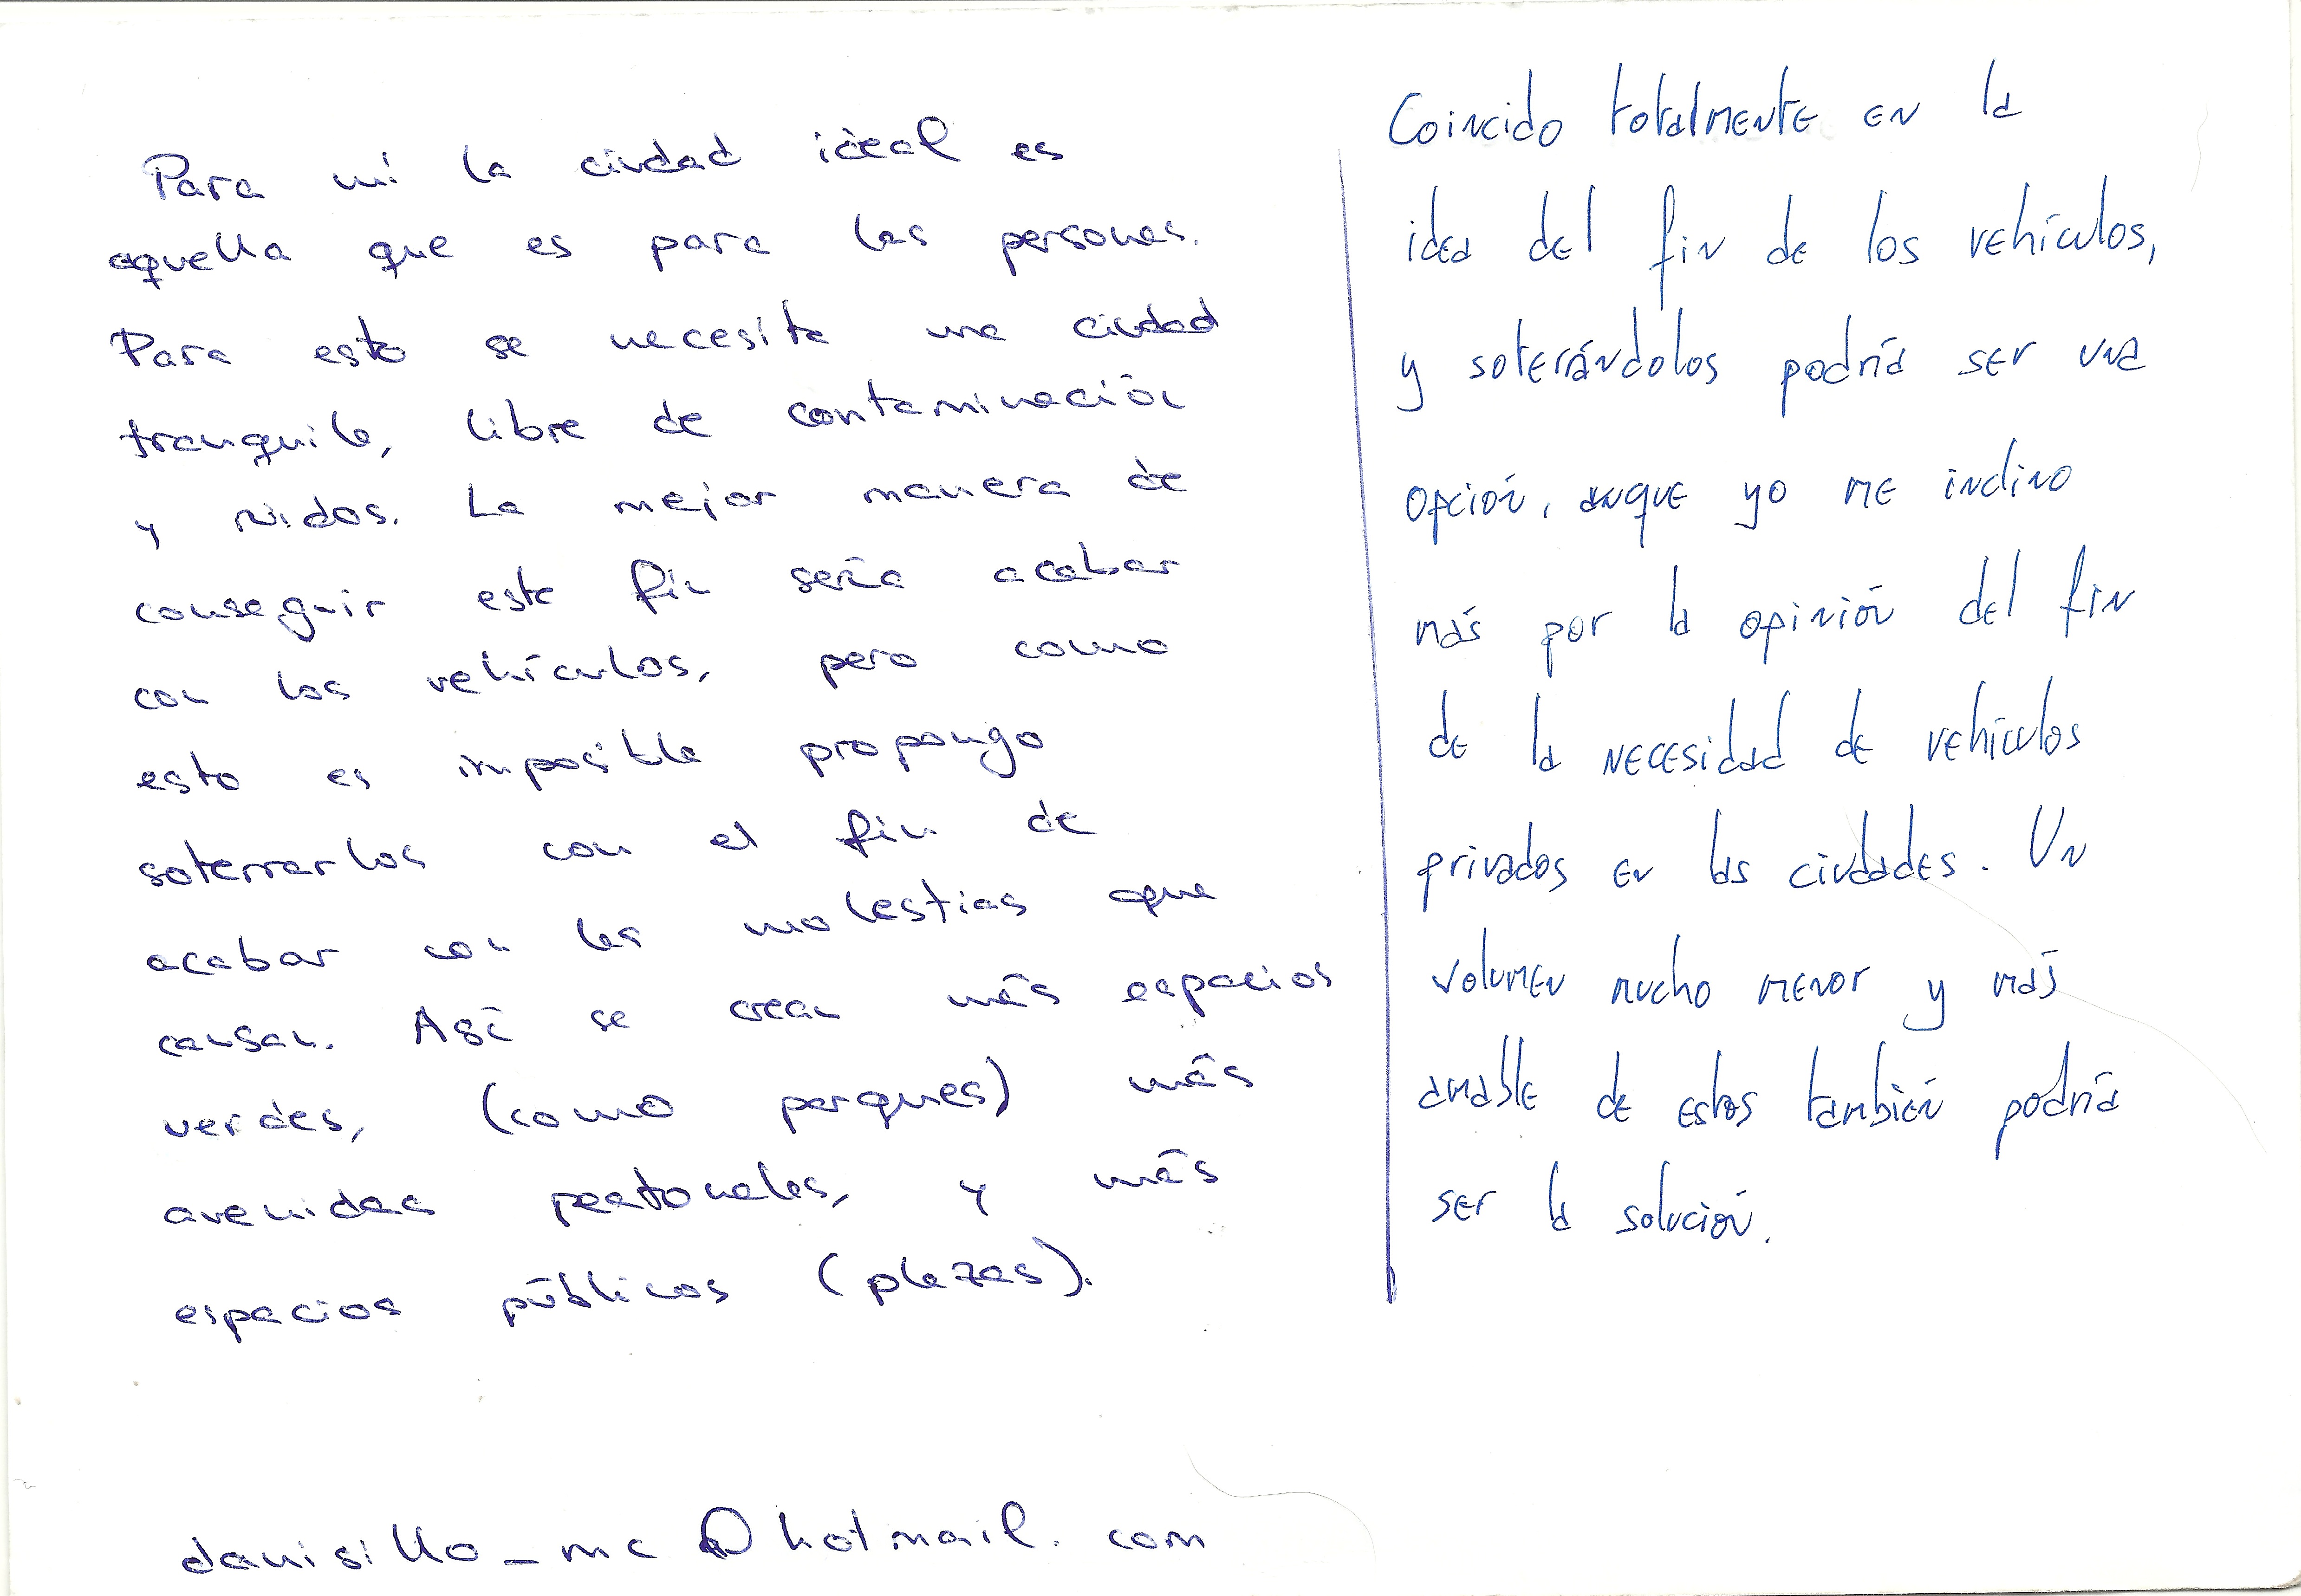 Para mi la ciudad ideal es
aquella que es para las personas.
Para esto se necesita una ciudad
tranquila, libre de contaminación
y ruidos. La mejor manera de
conseguir este fin sería acabar
con los vehículos, pero como
esto es imposible propongo
soterrarlos con el fin de
acabar con las molestias que
causan. Así se crean más espacios
verdes, (como parques) más
avenidas peatonales, y más
espacios públicos (plazas).
danisillo_mc@hotmail.com
Coincido totalmente en la
idea del fin de los vehículos,
y soterándolos podría ser una
opción, aunque yo me inclino
más por la opinión del fin
de la necesidad de vehículos
privados en las ciudades. Un
volumen mucho menor y más
amable de estos también podría
ser la solución.